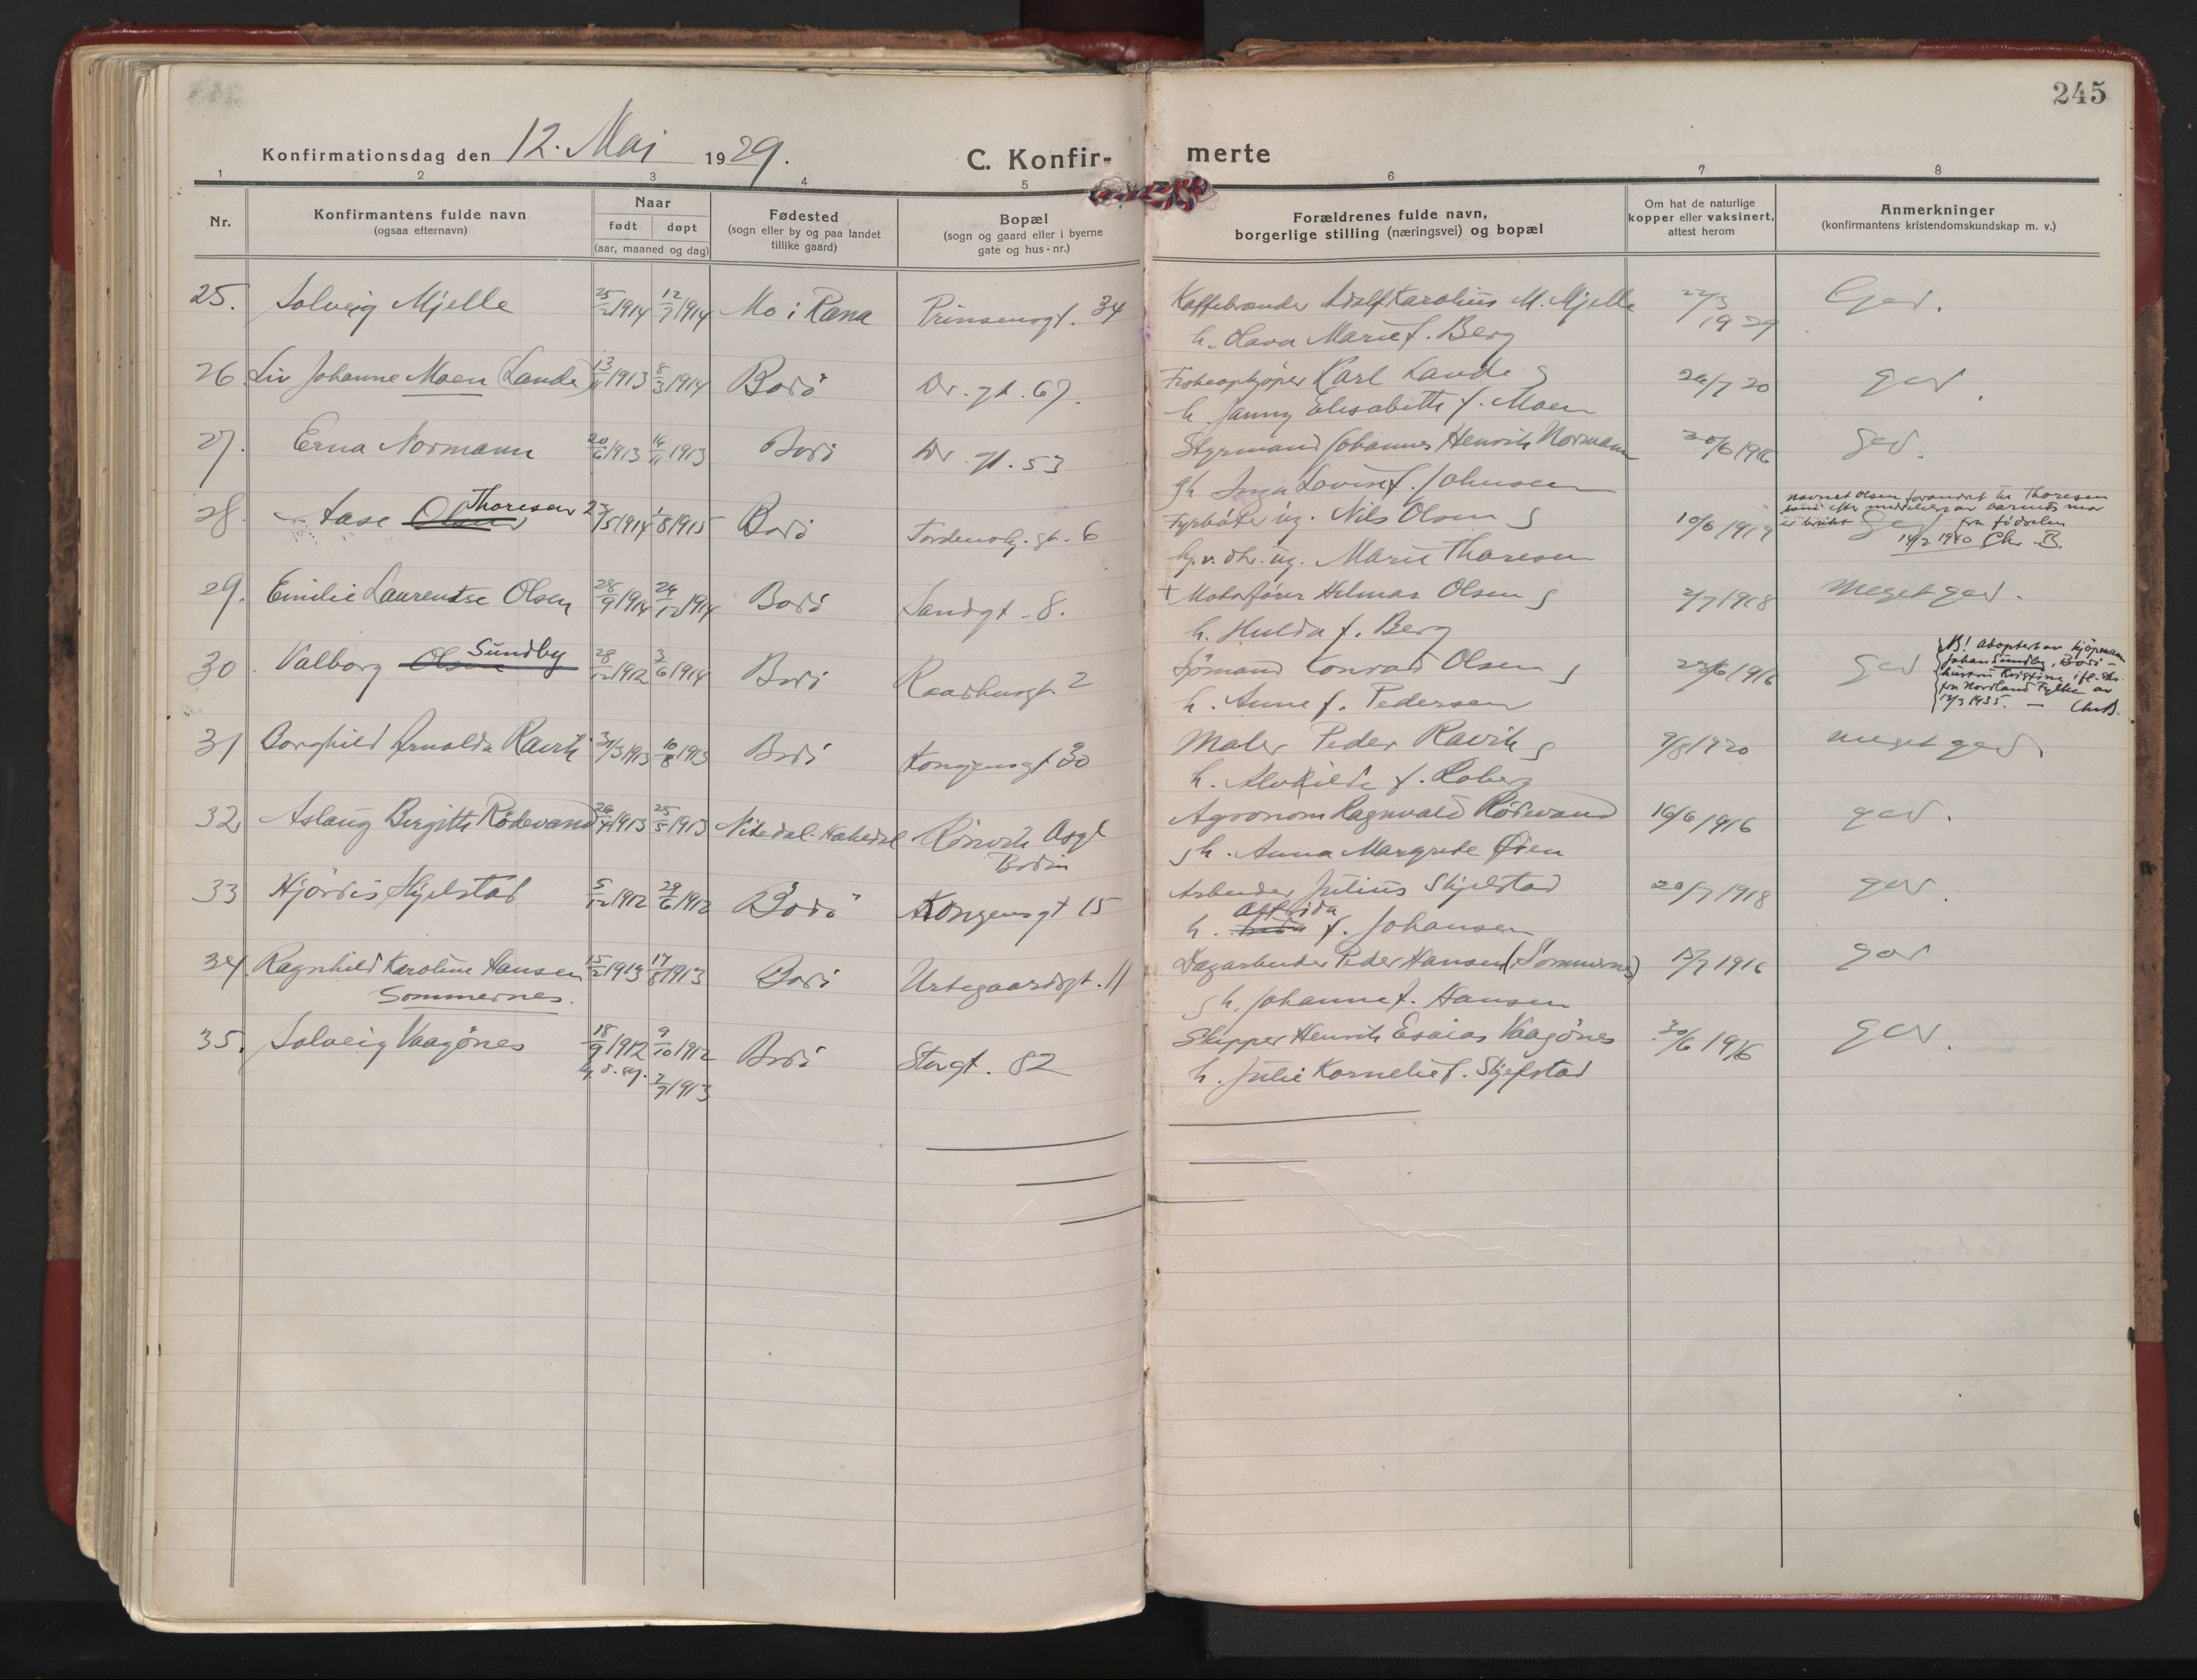 245
Konfirmationsdag den 12. Mai 1929. C. Konfir- merte
1 2 3 4 5 6 7 8
Nr.
Konfirmantens fulde navn
(ogsaa efternavn)
Naar
født døpt
(aar, maaned og dag)
Fødested
(sogn eller by og paa landet
tillike gaard)
Bopæl
(sogn og gaard eller i byerne
gate og hus-nr.)
Forældrenes fulde navn,
borgerlige stilling (næringsvei) og bopæl
Om hat de naturlige
kopper eller vaksinert,
attest herom
Anmerkninger
(konfirmantens kristendomskundskap m. v.)
25. Solveig Mjelle 25/2 1914 12/7 1914 Mo i Rana Prinsensgt. 34 Kaffebrænder Adolf Karolius M. Mjelle 22/3 1929 God.
h. Hava Marie f. Berg
26 Liv Johanne Moen (Lande) 13/11 1913 8/3 1914 Bodö Dr. gt. 67. Fiskeopkjøper Karl Lande g 24/7 20 god.
h. Janny Elisabeth f. Moen
27. Erna Normann 20/6 1913 14/11 1913 Bodö Dr. gt. 53 Styrmand Johannes Henrik Normann 30/6 1916 god.
gh Inga Lovise f. Johnsen
28. Aase Olsen Thoresen 27/5 1914 1/8 1915 Bodö Tordenskj. gt. 6 Fyrbøter ug. Nils Olsen g 10/6 1919 god
hj. v. dtr. ug. Marie Thoresen
navnet Olsen forandret til Thoresen
efter meddelelse av barnets mor
er brukt fra födselen
14/2 1940 Chr. B.
29. Emilie Laurentse Olsen 28/9 1914 26/12 1914 Bodö Sandgt. 8. + Motorfører Hilmar Olsen g 2/7 1918 Meget god.
h. Hulda f. Berg
30. Valborg Olsen Sundby 28/12 1912 3/6 1914 Bodö Raadhusgt. 2 Sjömand Konrad Olsen g 27/6 1916 God
h. Anne f. Pedersen
NB! Adoptert av kjöpmann
Johan Sundby, Bodö -
hustru Kristine ifl.
fra Nordland Fylke av
12/3 1935. — Chr. B.
31 Borghild Arnolda Ravik 31/3 1913 10/8 1913 Bodö Kongensgt 30 Maler Peder Ravik g 9/8 1920 meget god.
h. Alvhilde f.
32. Aslaug Birgitte Rödevand 24/4 1913 25/5 1913 Nitedal-Hakedal Rönvik Asyl Agronom Ragnvald Rödevand 16/6 1916 god.
Bodin
g h. Anna Margrete Øien
33 Hjördis Skjelstad 5/12 1912 29/6 1912 Bodö Kongensgt 15 Arbeider Julius Skjelstad 20/7 1918 god.
h. Alfrida f. Johansen
34. Ragnhild Karoline Hansen 15/2 1913 17/8 1913 Bodö Urtegaardsgt. 11 Dagarbeider Peder Hansen (Sommernes) 13/7 1916 god
Sommernes.
g h. Johanne f. Hansen
35. Solveig Vaagönes 18/9 1912 9/10 1912 Bodö Storgt. 82 Skipper Henrik Esaias Vaagönes 30/6 1916 god.
2/7 1913
h. Julie Kornelie f. Skjelstad